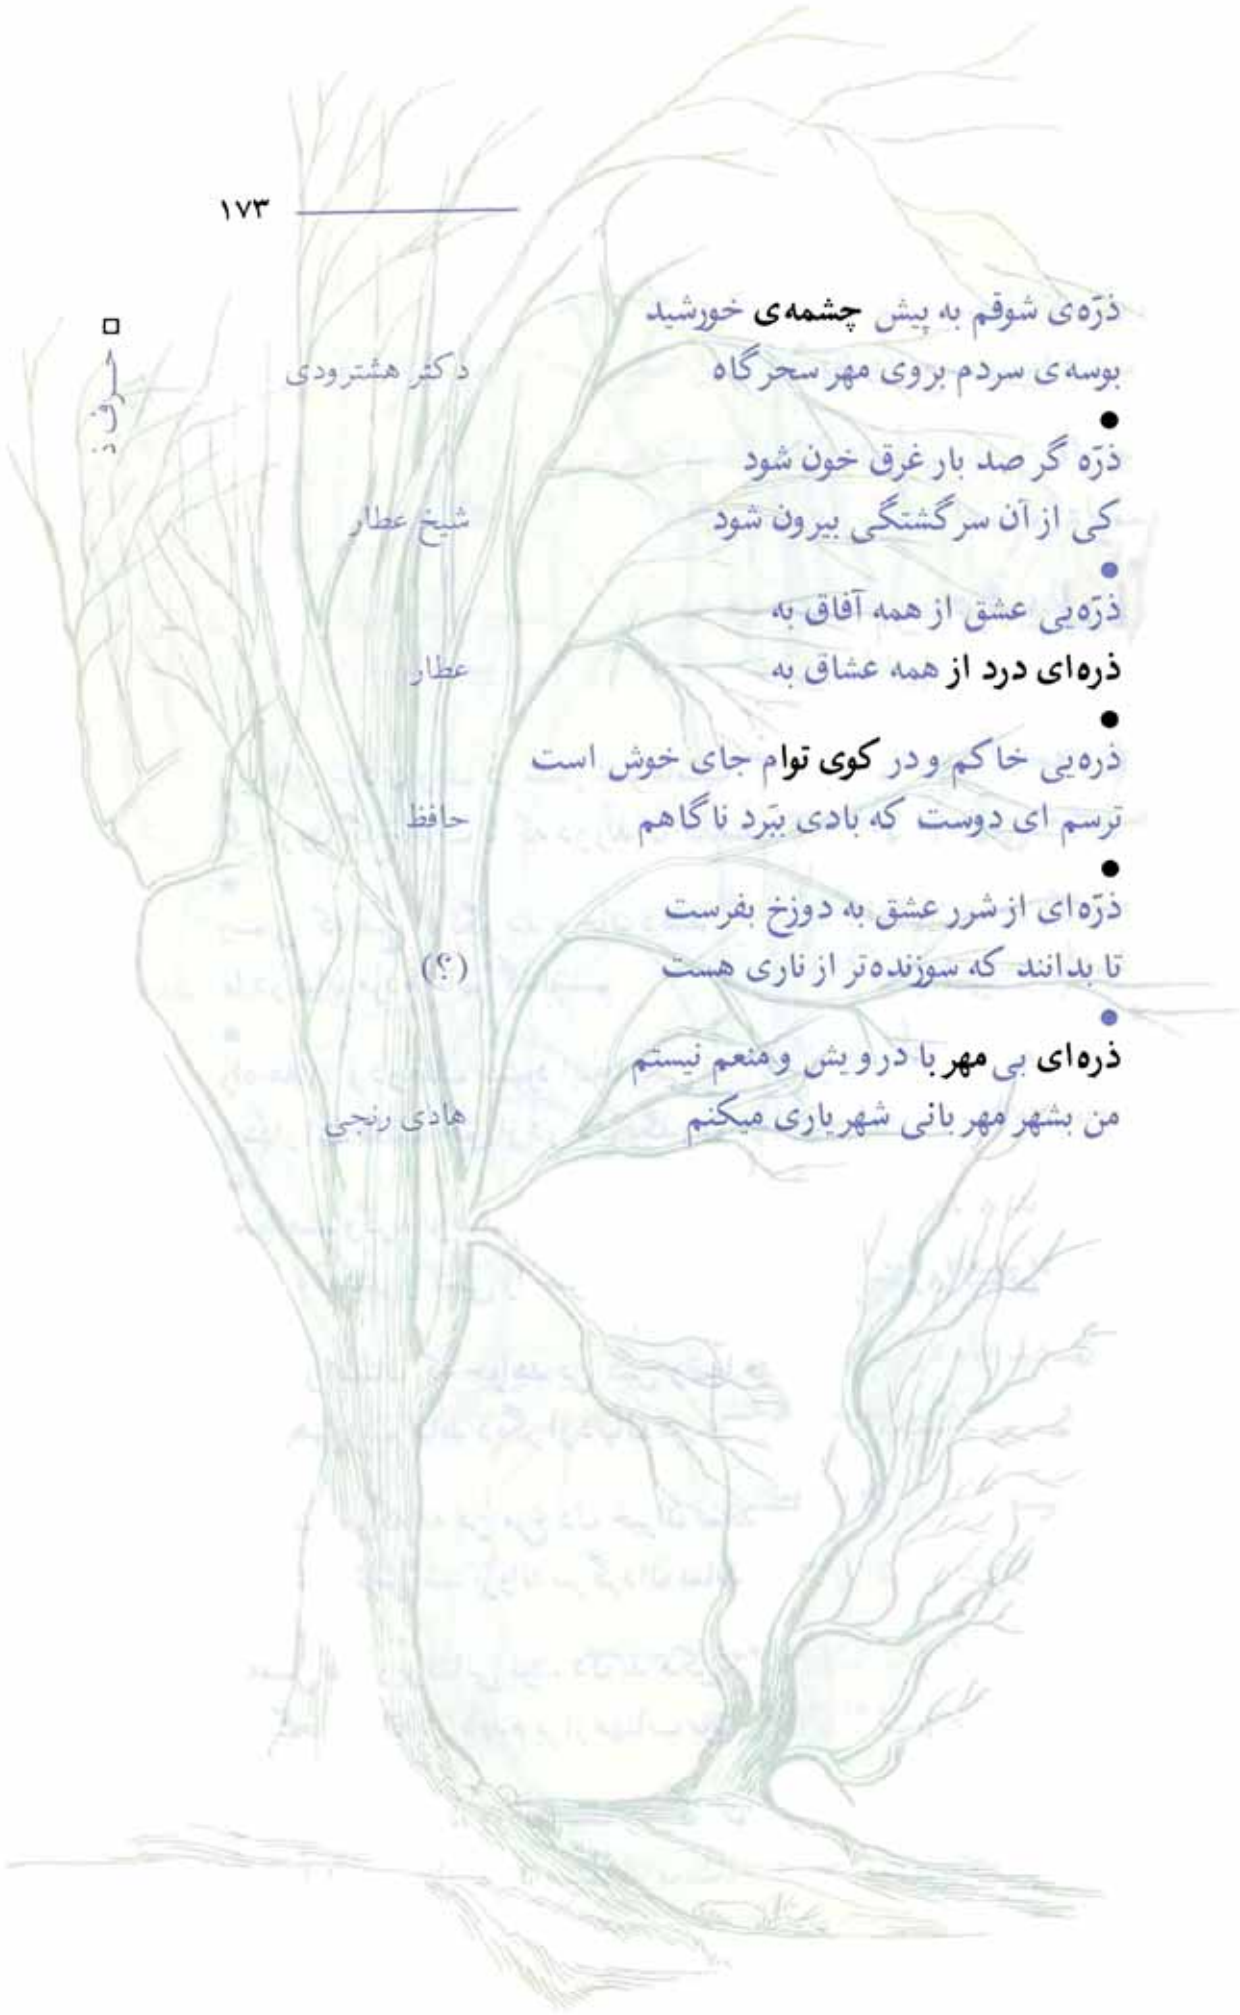 ۱۷۳
□ حرف ذ
ذرّه‌ی شوقم به پیش چشمه‌ی خورشید
بوسه‌ی سردم بروی مهر سحرگاه دکتر هشترودی
●
ذرّه گر صد بار غرق خون شود
کی از آن سرگشتگی بیرون شود شیخ عطار
●
ذرّه‌یی عشق از همه آفاق به
ذره‌ای درد از همه عشاق به عطار
●
ذره‌یی خاکم و در کوی توام جای خوش است
ترسم ای دوست که بادی ببَرد ناگاهم حافظ
●
ذرّه‌ای از شرر عشق به دوزخ بفرست
تا بدانند که سوزنده‌تر از ناری هست (؟)
●
ذره‌ای بی مهر با درویش و منعم نیستم
من بشهر مهربانی شهریاری میکنم هادی رنجی